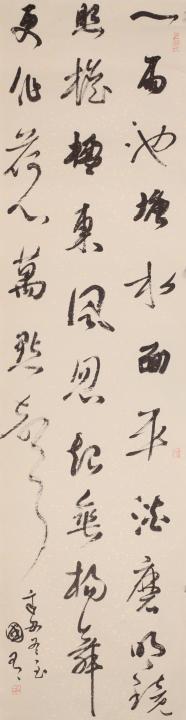 一雨池塘水面平淡磨明鏡
照檐楹東風忽起垂楊舞
更作荷心萬點聲